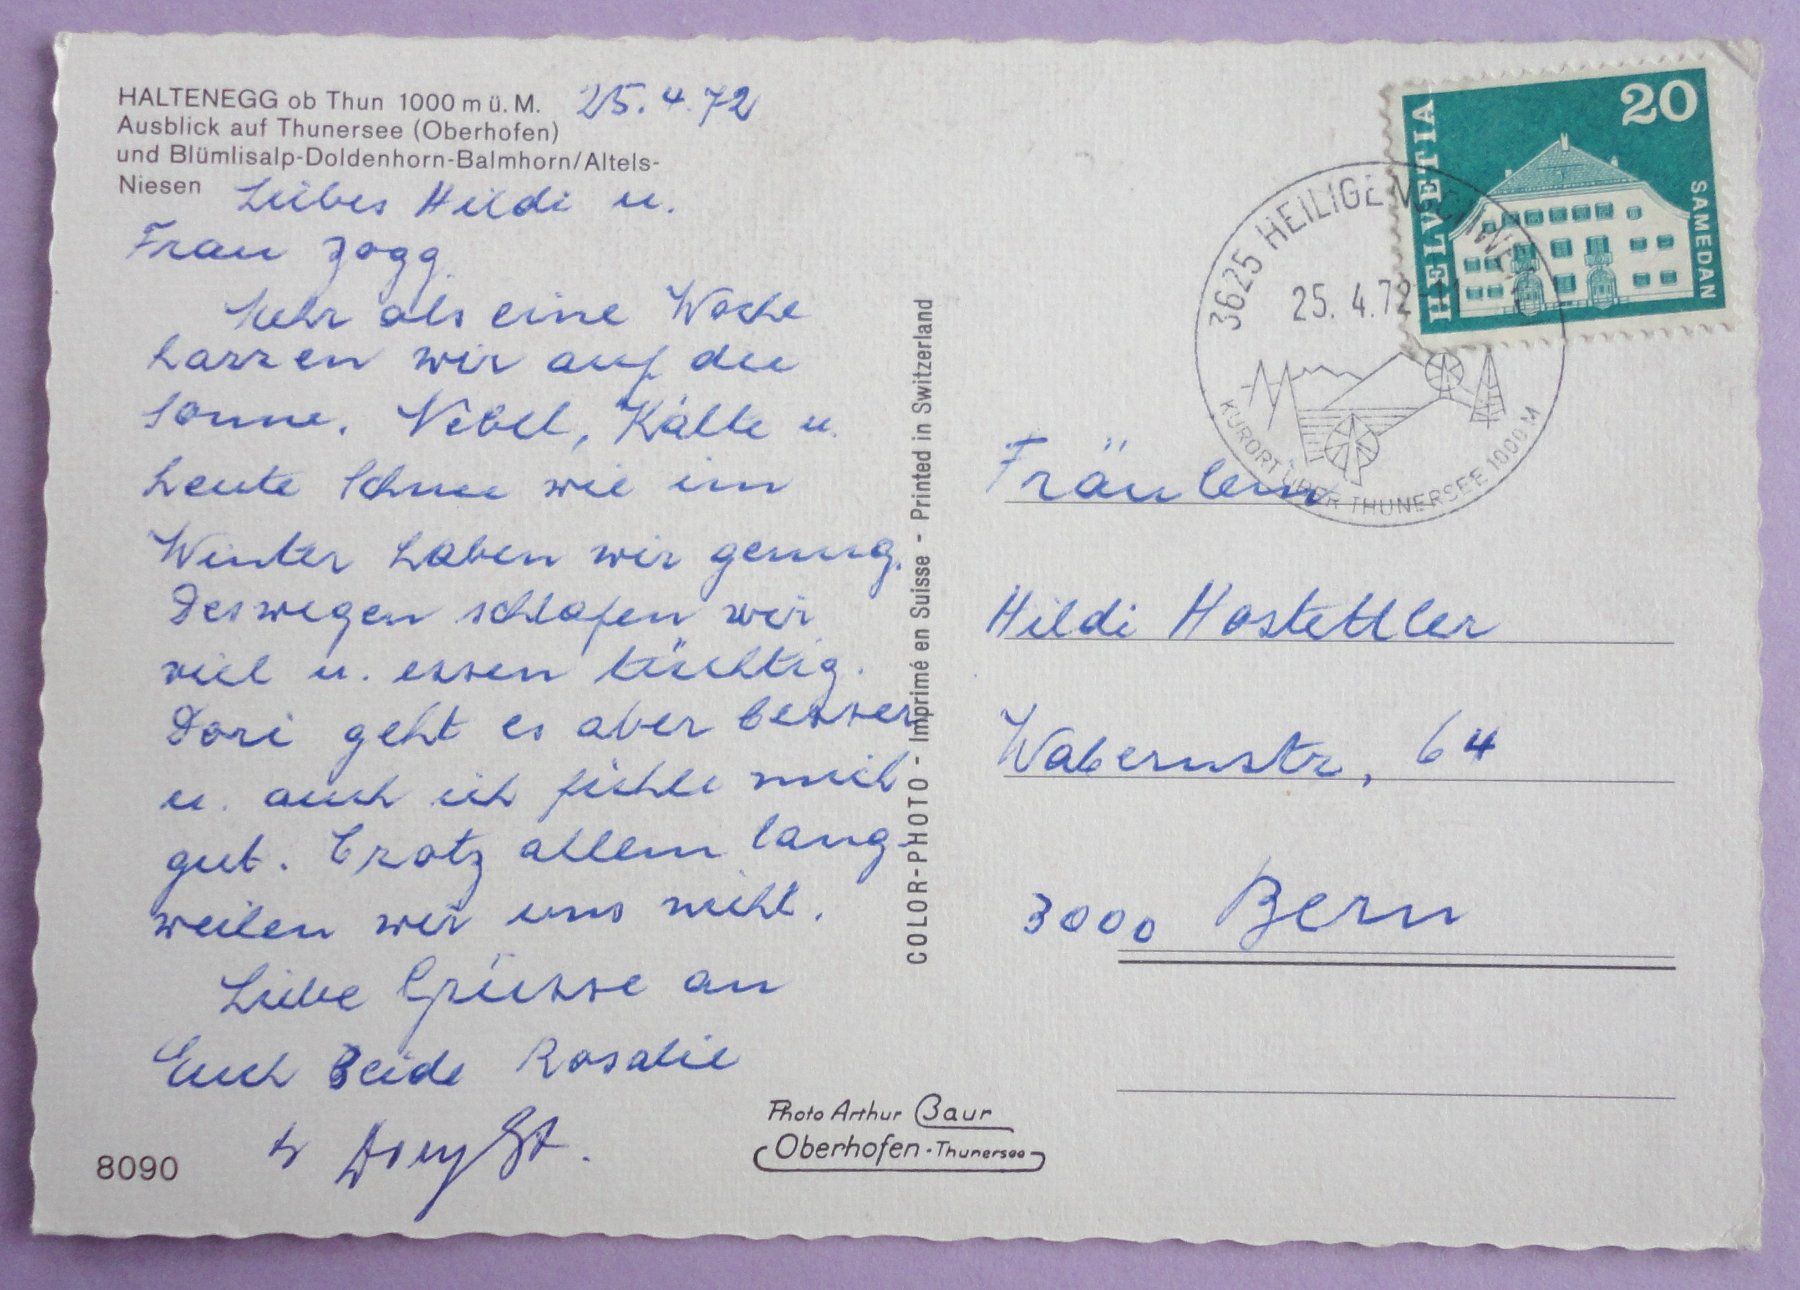 HALTENEGG ob Thun 1000 m ü. M.
Ausblick auf Thunersee (Oberhofen)
und Blümlisalp-Doldenhorn-Balmhorn/Altels-
Niesen
25.4.72
Liebes Hildi u.
Frau Zogg.
Mehr als eine Woche
harren wir auf die
Sonne. Nebel, Kälte u.
heute Schnee wie im
Winter haben wir genug.
Deswegen schlafen wir
viel u. essen tüchtig.
Dori geht es aber besser
u. auch ich fühle mich
gut. Trotz allem lang-
weilen wir uns nicht.
Liebe Grüsse an
Euch Beide Rosalie
8090
COLOR-PHOTO - Imprimé en Suisse - Printed in Switzerland
Photo Arthur Baur
Oberhofen-Thunersee
HELVETIA
20
SAMEDAN
3625 HEILIGENSCHWENDI
25.4.72
KURORT ÜBER THUNERSEE 1000 M
Fräulein
Hildi Hostettler
Wabernstr, 64
3000 Bern